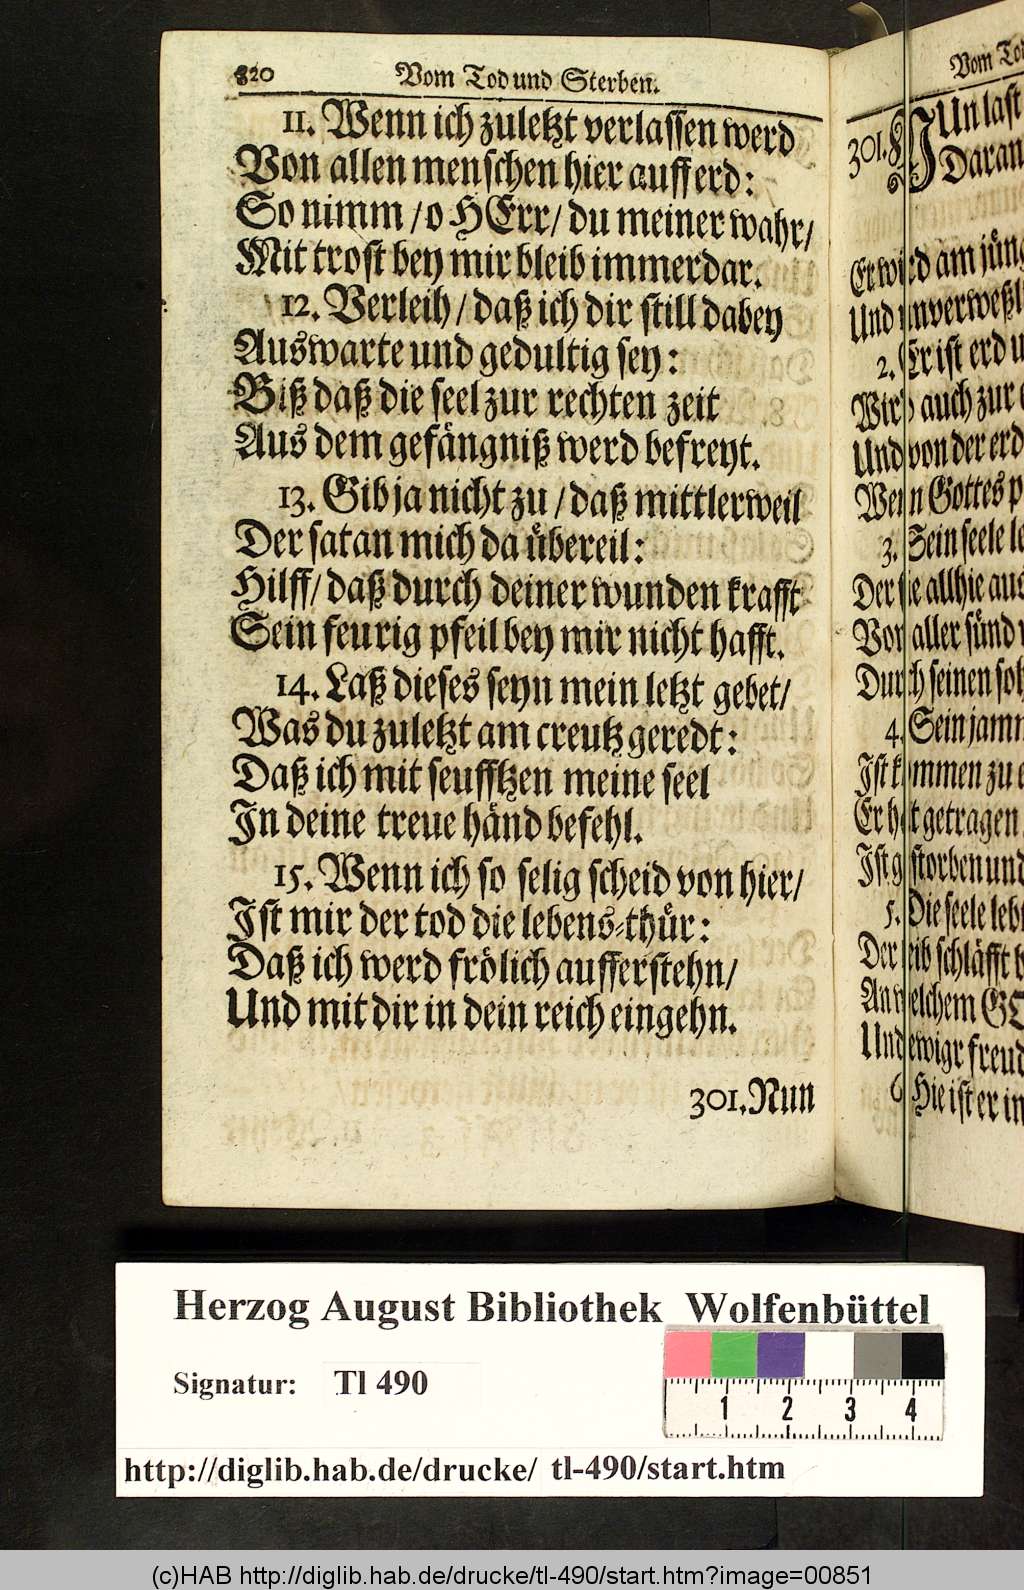 820 Vom Tod und Sterben.
11. Wenn ich zuletzt verlassen werd
Von allen menschen hier auff erd:
So nimm / o HErr / du meiner wahr /
Mit trost bey mir bleib immerdar.
12. Verleih / daß ich dir still dabey
Auswarte und gedultig sey:
Biß daß die seel zur rechten zeit
Aus dem gefängniß werd befreyt.
13. Gib ja nicht zu / daß mittlerweil
Der satan mich da übereil:
Hilff / daß durch deiner wunden krafft
Sein feurig pfeil bey mir nicht hafft.
14. Laß dieses seyn mein letzt gebet /
Was du zuletzt am creutz geredt:
Daß ich mit seufftzen meine seel
In deine treue händ befehl.
15. Wenn ich so selig scheid von hier /
Ist mir der tod die lebens-thür:
Daß ich werd frölich aufferstehn /
Und mit dir in dein reich eingehn.
301. Nun
Vom
301. NUn last
Daran
Er wird am
Und unverweßl
2. Er ist erd
Wird auch zur
Und von der erd
Wenn Gottes
3. Sein seele
Der sie allhie aus
Von aller sünd
Durch seinen
4. Sein
Ist kommen zu
Er hat getragen
Ist gestorben und
5. Die seele
Der leib schläfft
An welchem
Und ewigr freud
6. Hie ist er in
Herzog August Bibliothek Wolfenbüttel
Signatur: Tl 490
1 2 3 4
http://diglib.hab.de/drucke/ tl-490/start.htm
(c)HAB http://diglib.hab.de/drucke/tl-490/start.htm?image=00851